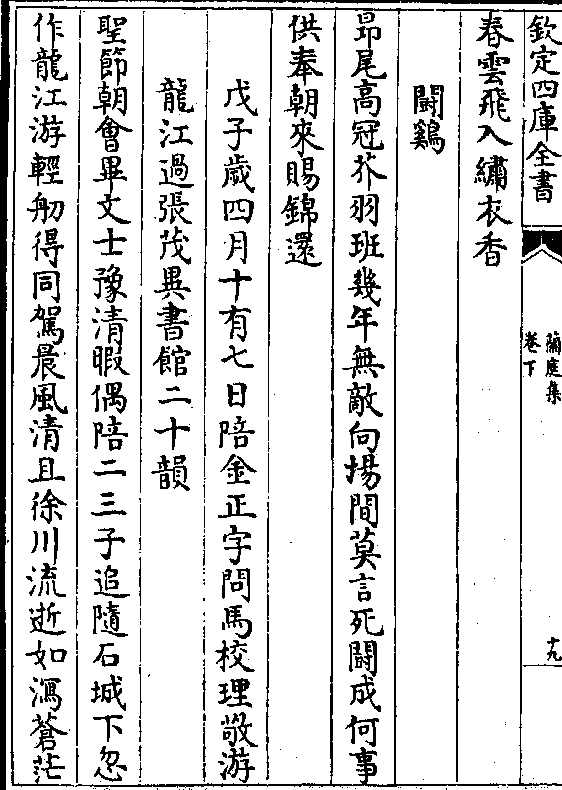 欽定四庫全書
蘭庭集
卷下
十九
春雲飛入繡衣香
鬪鷄
昂尾高冠芥羽班幾年無敵向場間莫言死鬪成何事
供奉朝來賜錦還
戊子歲四月十有七日陪金正字問馬校理敬游
龍江過張茂異書館二十韻
聖節朝會畢文士豫清暇偶陪二三子追隨石城下忽
作龍江游輕舠得同駕晨風清且徐川流逝如瀉蒼茫